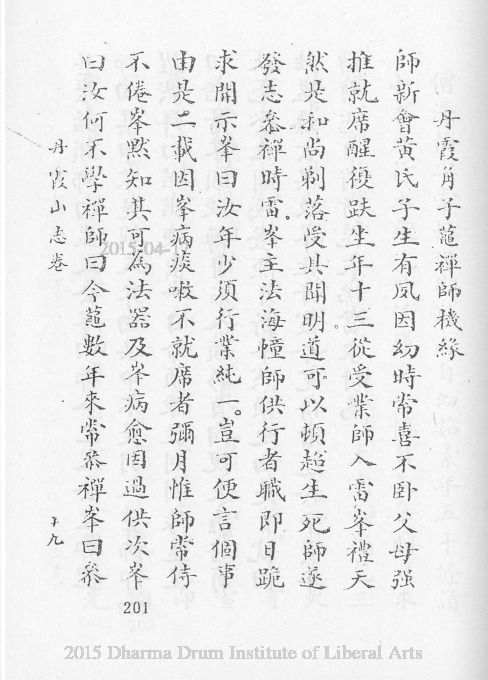 丹霞角子蒀禪師機緣
師新會黃氏子生有夙因幼時常喜不卧父母强
推就席醒復趺坐年十三從受業師入雷峯禮天
然昰和尚剃落受具聞明道可以頓超生死師遂
發志叅禪時雷峯主法海幢師供行者職即日跪
求開示峯曰汝年少須行業純一豈可便言個事
由是二載因峯病痰嗽不就席者彌月惟師常侍
不倦峯黙知其可為法器及峯病愈因過供次峯
曰汝何不學禪師曰今蒀數年來常叅禪峯曰叅
丹霞山志卷
十九
201
2015-04-17
2015 Dharma Drum Institute of Liberal Arts